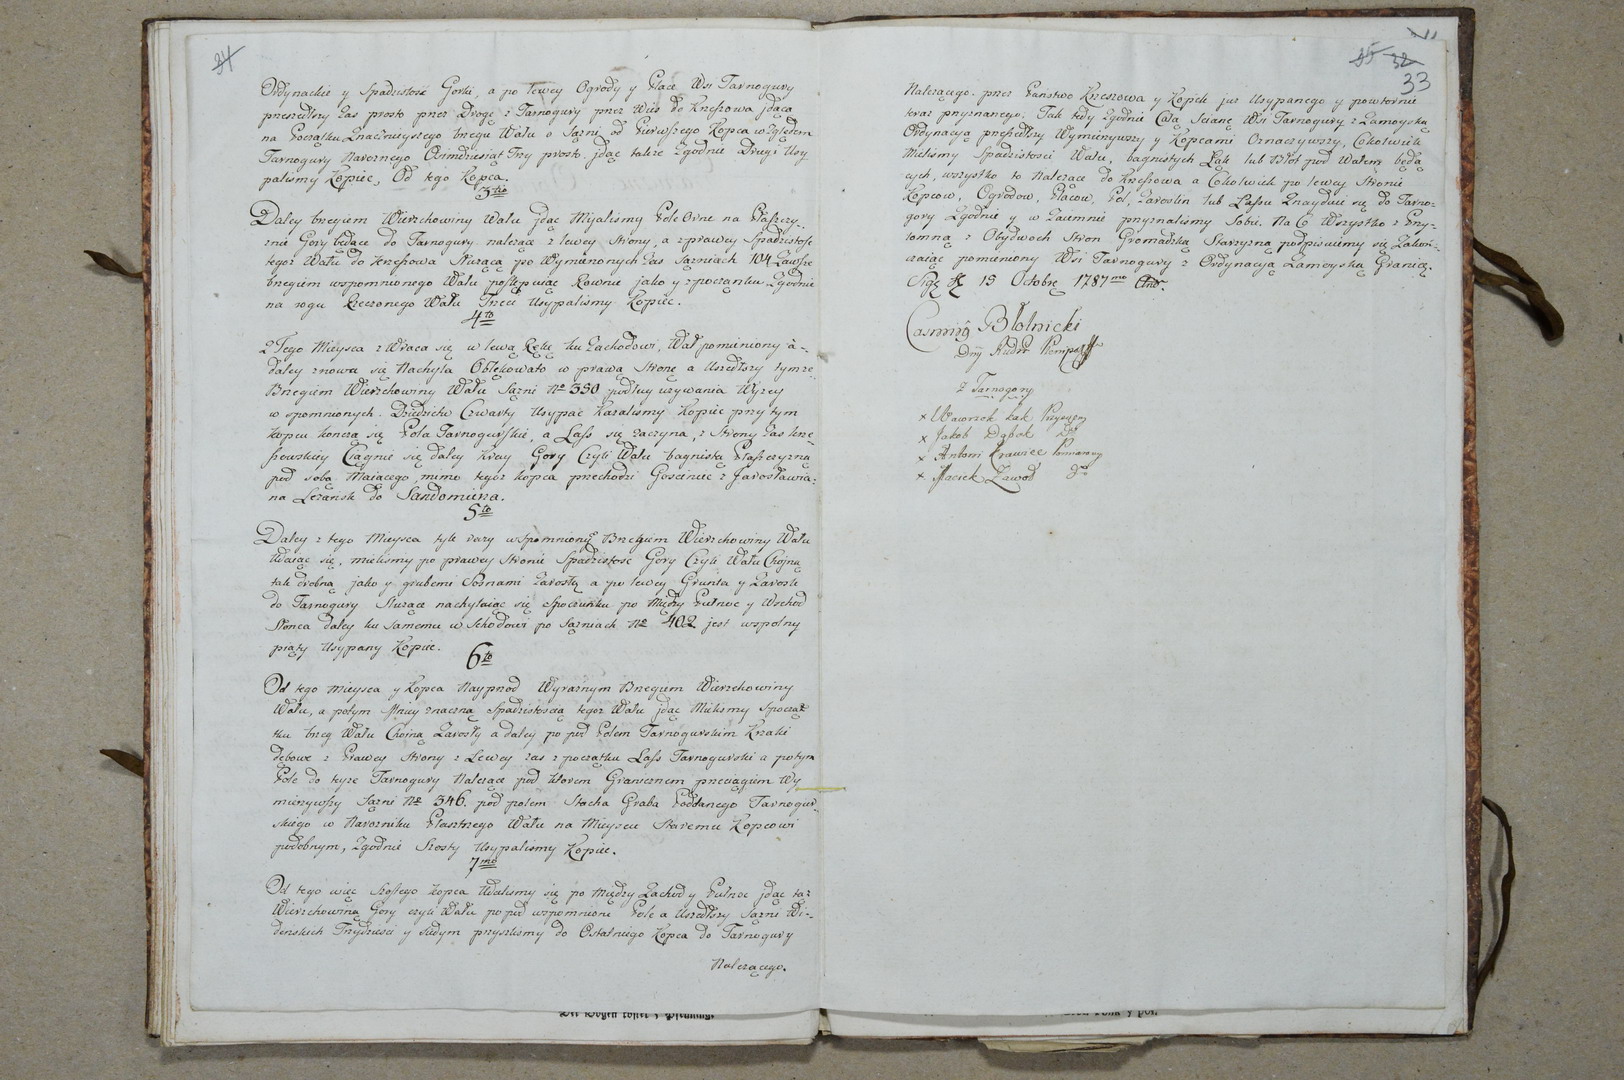 34
Ordynackie y Spadzistość Gorki, a po lewey Ogrody y Place Wsi Tarnogury
przeszedłszy zas prosto przez Drogę z Tarnogury przez Wieś do Krzeszowa jdącą
na Początku Znacznieyszego bregu Wału o Sązni od Pierwszego Kopca względem
Tarnogury Naroznego Osimdziesiąt Trzy prosto jdąc takze Zgodnie Drugi Usy
palismy Kopiec, Od tego Kopca.
3tio
Daley bregiem Wierzchowiny Wału jdąc Mijalismy Pole Orne na Płaszczy-
znie Gory będące do Tarnogury nalezące z lewey Strony, a z prawey Spadzistość
tegoz Wału do Krzeszowa Słuzącą po Wymierzonych zas Sązniach 104 Zawsze
bregiem wspomnionego Wału postępuiąc Rownie jako y z początku Zgodnie
na rogu Rzeczonego Wału Trzeci Usypalismy Kopiec.
4to
Z Tego Mieysca zWraca się w lewą Rękę ku Zachodowi, Wał pomieniony a-
daley znowu się Nachyla Obłękowato w prawą Stronę a Uszedłszy tymze
Bregiem Wierzchowiny Wału Sązni No 350 podług uzywania Wyzey
wspomnionych. Dziedzictw Czwarty Usypać Kazalismy Kopiec przy tym
Kopcu koncza się Pola Tarnogurskie, a Lass się zaczyna, z Strony zas krze-
szowskiey Ciągnie się daley kray Gory Czyli Wału bagnistą Płaszczyznę
pod sobą Maiącego, mimo tegoz kopca przechodzi Gościniec z Jarosławia:
na Lezaysk do Sandomirza.
5to
Daley z tego Mieysca tyle razy wspomnionym Bregiem Wierzchowiny Wału
Udaiąc się, mielismy po prawey Stronie Spadzistość Gory Czyli Wału Choiną
tak drobną jako y grubemi Sosnami Zarosłą a po lewey Grunta y Zarosle
do Tarnogury Słuzące nachylaiąc się zpoczątku po Między Pułnoc y Wschod
Słonca daley ku Samemu wSchodowi po Sązniach No 402 jest wspolny
piąty Usypany Kopiec.
6to
Od tego mieysca y Kopca Nayprzod Wyraznym Bregiem Wierzchowiny
Wału, a potym Mniey znaczną Spadzistoscią tegoz Wału jdąc Mielismy zpocząt
ku breg Wału Choiną Zarosły a daley po pod Polem Tarnogurskim Krzaki
dębowe z Prawey Strony z Lewey zas z początku Lass Tarnogurski a potym
Pole do teyze Tarnogury Nalezące pod ktorem Granicznem przeciągiem Wy
mierzywszy Sązni No 546. pod polem Stacha Graba Poddanego Tarnogur-
skiego w Narozniku Płaskiego Wału na Mieyscu Staremu Kopcowi
podobnym, Zgodnie Szosty Usypalismy Kopiec.
7mo
Od tego więc Szostego kopca Udalismy się po Między Zachod y Pułnoc jdąc taz
Wierzchowiną Gory czyli Wału po pod wspomnione Pole a Uszedłszy Sązni Wi-
denskich Trzydzieści y Siedym przyszlismy do Ostatniego Kopca do Tarnogury
Nalezącego.
35 32
33
Nalezącego. przez Państwo Krzeszowa y Kopek juz Usypanego y powtornie
teraz przyznanego. Tak tedy zgodnie Całą Scianę Wsi Tarnogury z Zamoyską
Ordynacyą przeszedłszy Wymierzywszy y Kopcami Oznaczywszy, Cokolwiek
Mielismy Spadzistosci Wału, bagnistych Łąk lub Błot pod Wałem będą
cych, wszystko to Nalezące do Krzeszowa a Cokolwiek po lewey Stronie
Kopcow, Ogrodow, Placow, Pol, Zaroslin lub Lassu Znayduie się do Tarno-
gory Zgodnie y wzaiemnie przyznalismy Sobie. Na Co Wszystko z Przy-
tomną z Obydwoch Stron Gromadzką Starzyzną podpisuiemy się Zakoń-
czaiąc pomieniony Wsi Tarnogury z Ordynacyą Zamoyską Granicę.
15 Octobrę 1787mo
Błotnicki
Z Tarnogory
x Wawrzek Kak Przysęzny
x Jakob Dąbek do
x Antoni Krawiec
x Maciek Zawoł do